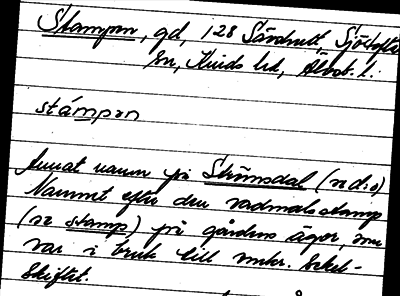 Stampen, gd, 1/28 Särdrutt, Sjötofta
sn, Kinds hd, Älvsb. l.
stámpən
Annat namn på Strömsdal (se d:o)
Namnet efter den vadmalsstamp
(se stamp) på gårdens ägor, som
var i bruk till omkr. sekel-
skiftet.